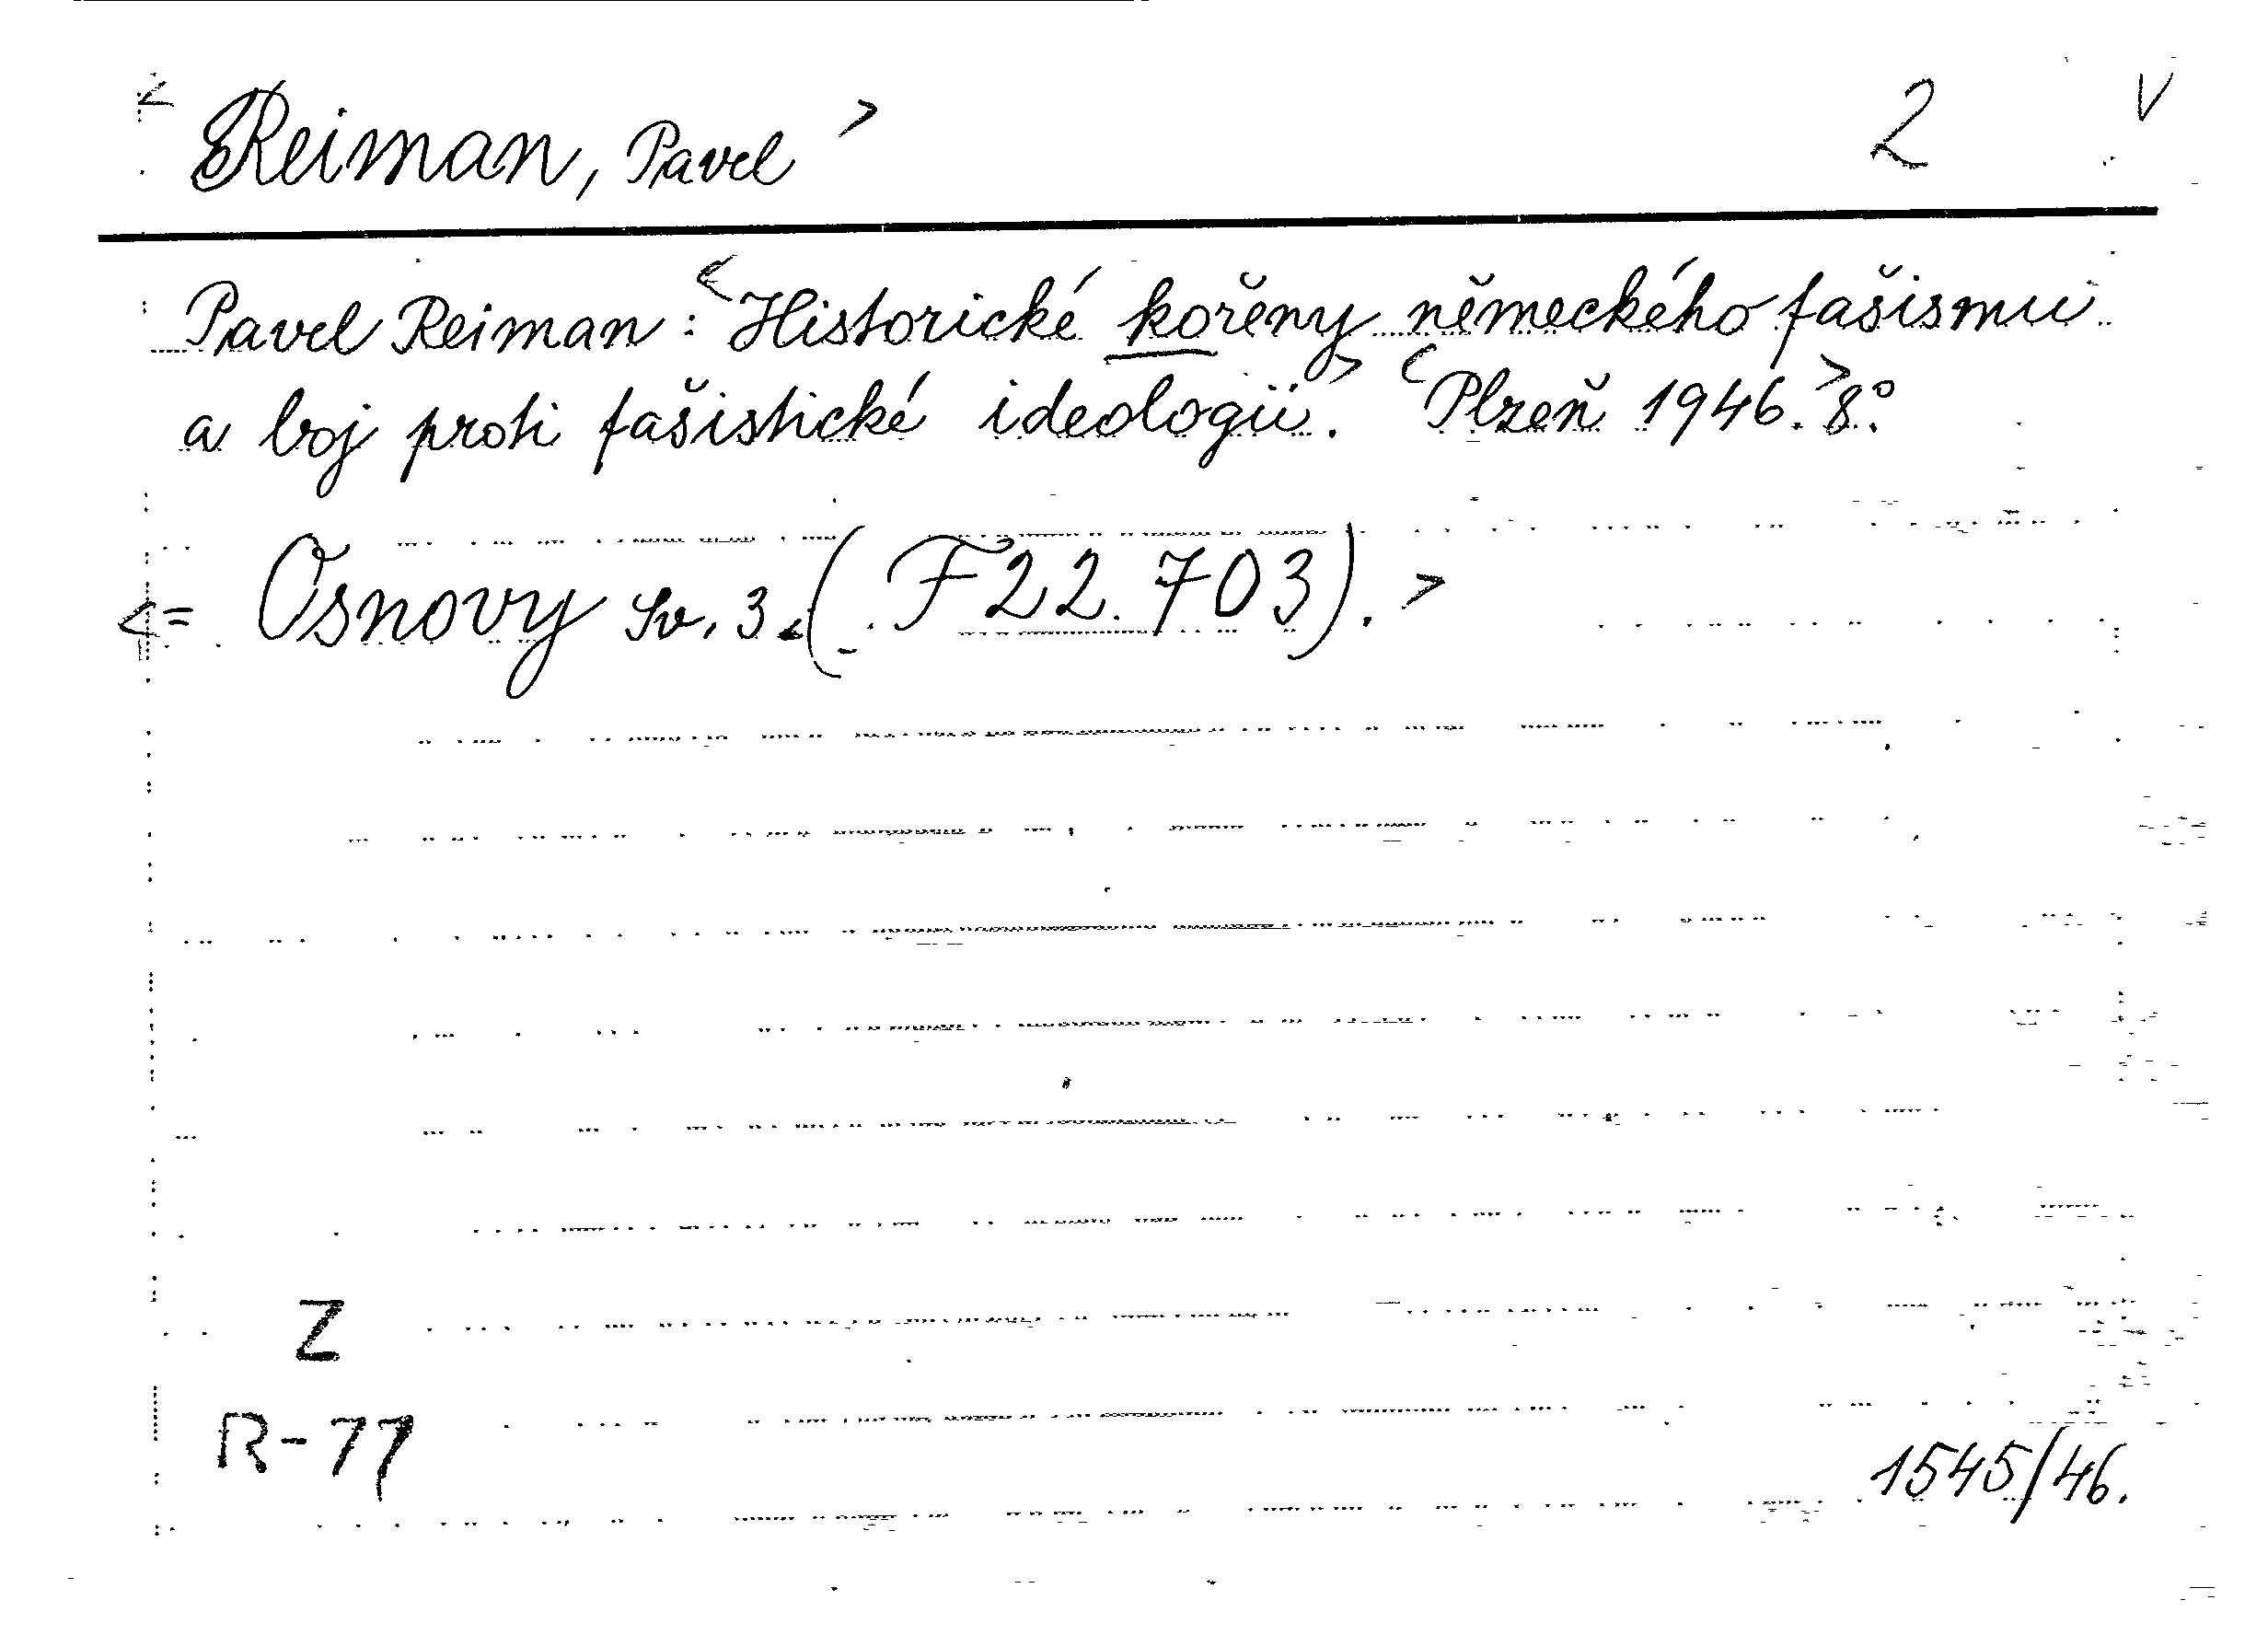 < Reiman, Pavel > 2 V
Pavel Reiman: <Historické kořeny německého fašismu
a boj proti fašistické ideologii.> <Plzeň 1946.> 8.°
<= Osnovy sv. 3. (F 22.703). >
Z
R-77
1545/46.